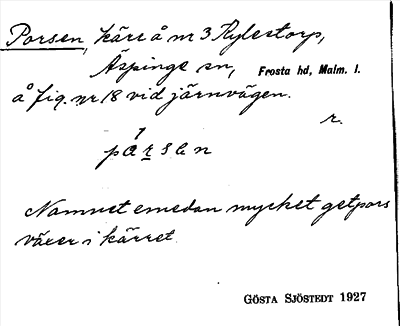 Porsen, kärr å nr 3 Kylestorp,
Äspinge sn, Frosta hd, Malm. l.
å fig. nr 18 vid järnvägen.
r.
Namnet emedan mycket getpors
växer i kärret.
GÖSTA SJÖSTEDT 1927